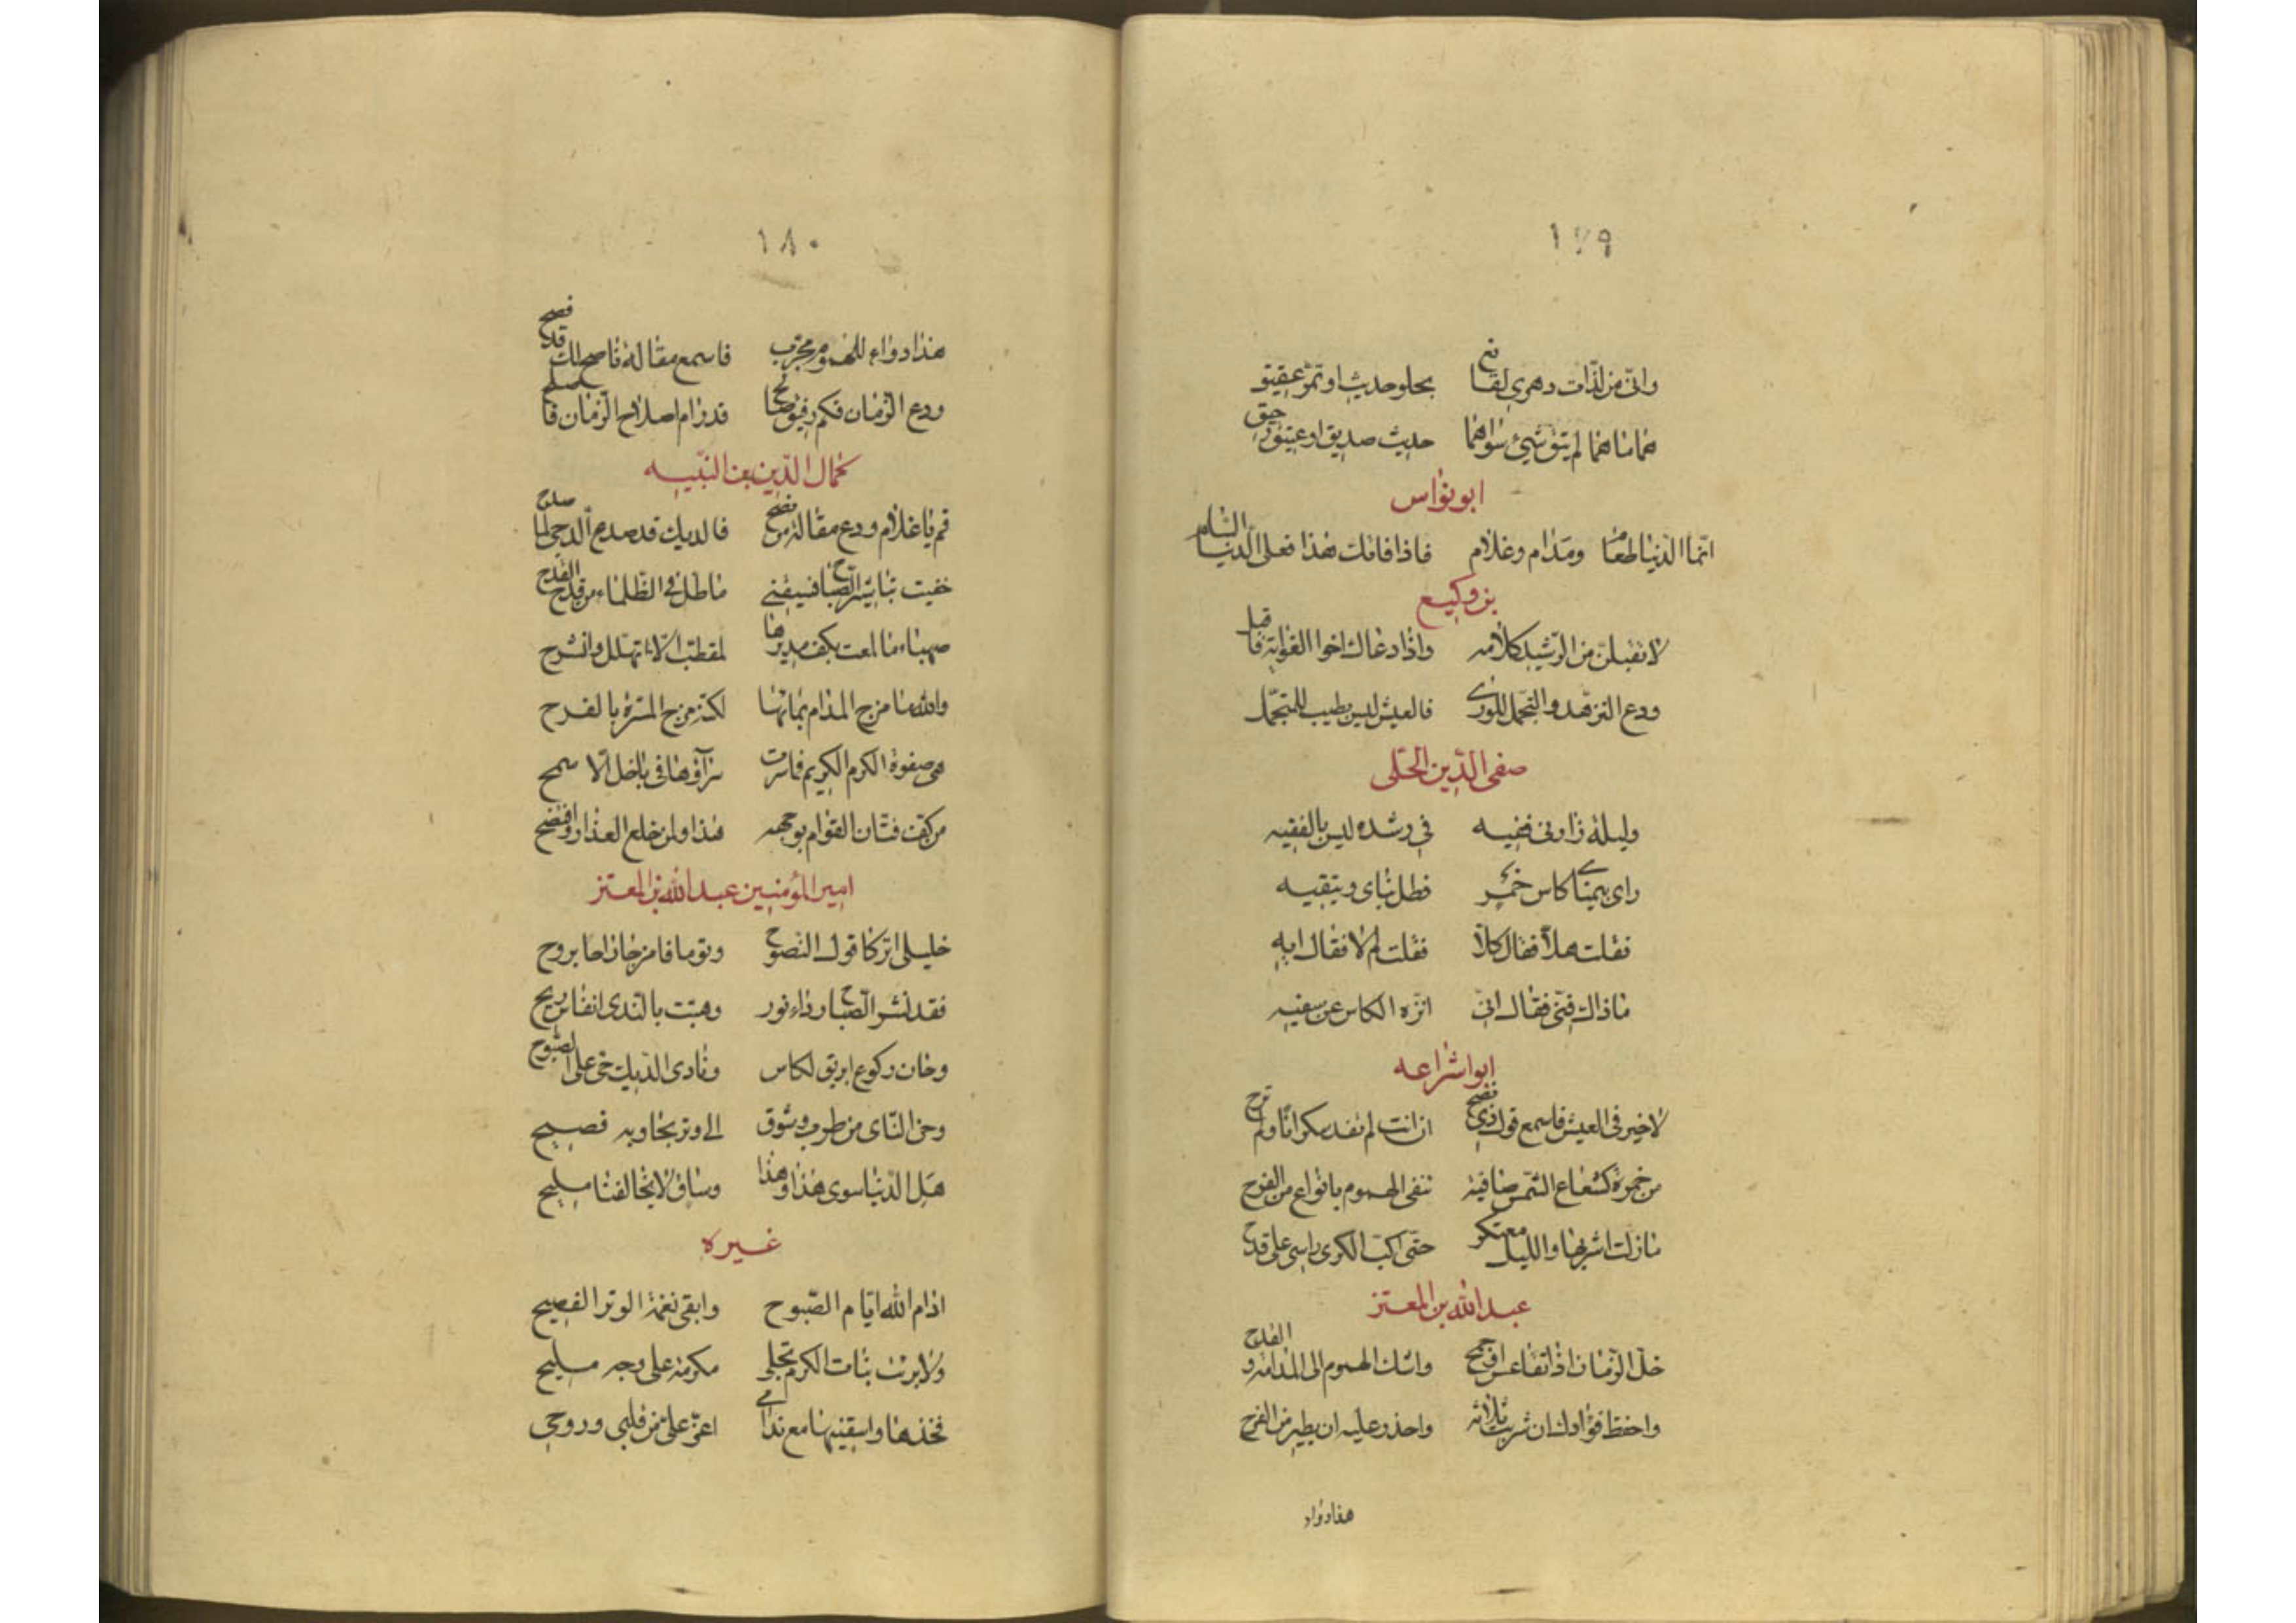 ١٧٩
وانى من لذات دهري لقانع بحلو حديث او بمر عتيق
هما ما هما لم يبق شيئ سواهما حديث صديق او عتيق رحيق
ابو نواس
انما الدنيا طعام ومدام وغلام فاذا فاتك هذا فعلى الدنيا السلام
بن وكيع
لا تقبلن من الرشيد كلامه واذا دعاك اخوا الغواية فاقبل
ودع التزهد والتجمل للورى فالعيش ليس يطيب للمتجمل
صفى الدين الحلى
وليلة زارنى فقيه في رشده ليس بالفقيه
راى بيمناى كاس خمر فظل ينأى ويتقيه
فقلت هلا فقال كلا فقلت لم لا فقال ايه
ماذاك فنى فقال انى انزه الكاس عن سفيه
ابو اشراعه
لا خير فى العيش فاسمع قول ذي نصح ان انت لم تغد سكرانا ولم ترح
من خمرة كشعاع الشمس صافية تنفى الهموم بانواع من الفرح
مازلت اشربها والليل معتكر حتى اكب الكرى راسى على قدح
عبد الله بن المعتز
خل الزمان اذا تقاعس او جمح واشك الهموم الى المدامة و القدح
واحفظ فؤادك ان شربت ثلاثة واحذر عليه ان يطير من الفرح
هذا دواء
١٨٠
هذا دواء للهموم مجرب فاسمع مقالة ناصح لك قد نصح
ودع الزمان فكم رفيق ناصح قد رام اصلاح الزمان فا صلح
كمال الدين بن النبيه
قم يا غلام ودع مقالة من نصح فالديك قد صدع الدجى لما صدح
خفيت تباشير الصباح فسقنى ماطل فى الظلماء من قدح القدح
صهباء ما لمعت بكف مديرها لمقطب الا تهلل وانشرح
والله ما مزج المدام بمائها لكنه مزج المسرة بالفرح
هى صفوة الكرم الكريم فاسرت سراؤها فى باخل الا سمح
من كف فتان القوام بوجهه هذا ولمن خلع العذار وافتضح
امير المؤمنين عبد الله بن المعتز
خليلى اتركا قول النصوح وقوما فامزجا راحا بروح
فقد نشر الصباح رداء نور وهبت بالندى انفاس ريح
وحان ركوع ابريق لكاس ونادى الديك حى على الصبوح
وحن الناى من طرب وشوق الى وتر يجاوبه فصيح
هل الدنيا سوى هذا وهذا وساق لا يخالفنا مليح
غيره
ادام الله ايام الصبوح وابقى نغمة الوتر الفصيح
ولا برحت بنات الكرم تجلى مكرمة على وجه مليح
فخذها واسقينيها مع ندامى اعز على من قلبى وروحى